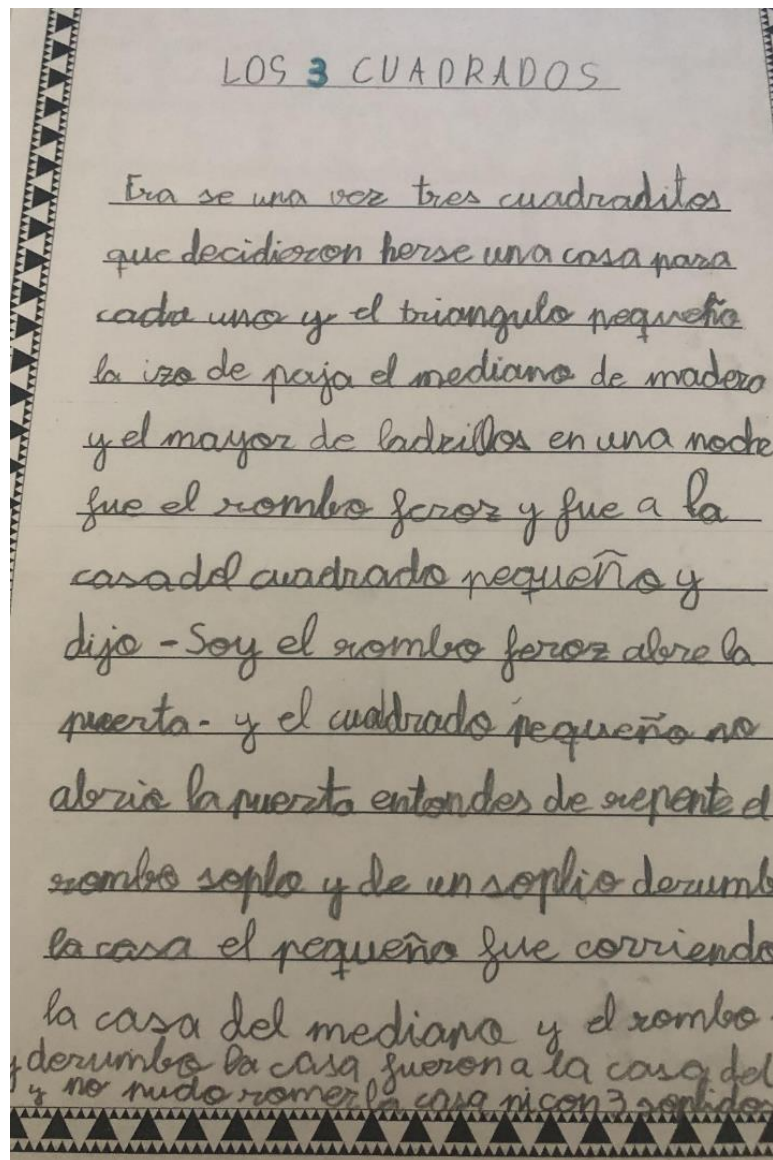 LOS 3 CUADRADOS
Era se una vez tres cuadraditos
que decidieron herse una casa para
cada uno y el triangulo pequeño
la izo de paja el mediano de madera
y el mayor de ladrillos en una noche
fue el rombo feroz y fue a la
casa del cuadrado pequeño y
dijo - Soy el rombo feroz abre la
puerta - y el cualdrado pequeño no
abrio la puerta entondes de repente el
rombo soplo y de un soplio derumb
la casa el pequeño fue corriendo
la casa del mediano y el rombo
y derumbo la casa fueron a la casa del
y no pudo romer la casa ni con 3 soplidos